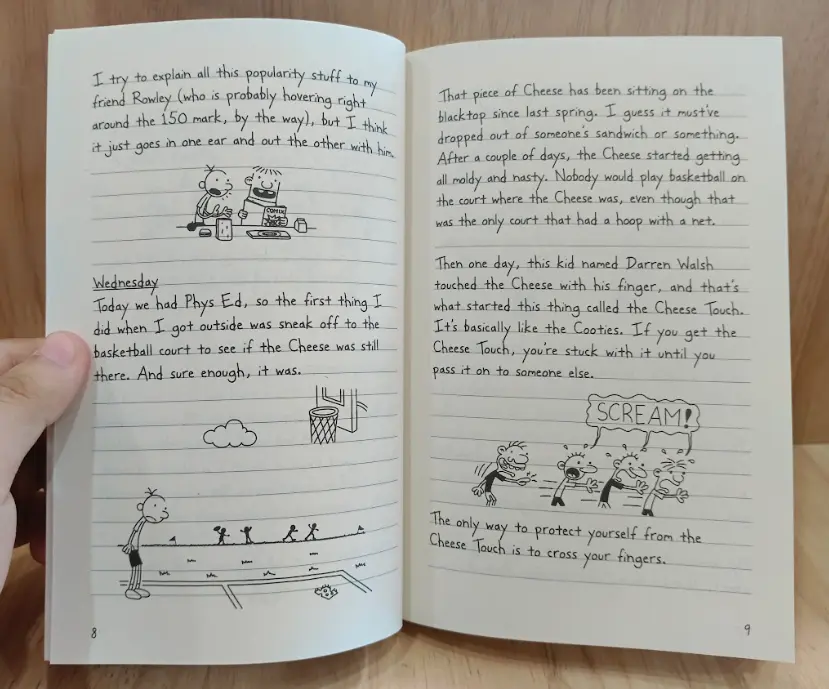 I try to explain all this popularity stuff to my
friend Rowley (who is probably hovering right
around the 150 mark, by the way), but I think
it just goes in one ear and out the other with him.
COMIX
Wednesday
Today we had Phys Ed, so the first thing I
did when I got outside was sneak off to the
basketball court to see if the Cheese was still
there. And sure enough, it was.
8
That piece of Cheese has been sitting on the
blacktop since last spring. I guess it must've
dropped out of someone's sandwich or something.
After a couple of days, the Cheese started getting
all moldy and nasty. Nobody would play basketball on
the court where the Cheese was, even though that
was the only court that had a hoop with a net.
Then one day, this kid named Darren Walsh
touched the Cheese with his finger, and that's
what started this thing called the Cheese Touch.
It's basically like the Cooties. If you get the
Cheese Touch, you're stuck with it until you
pass it on to someone else.
SCREAM!
The only way to protect yourself from the
Cheese Touch is to cross your fingers.
9